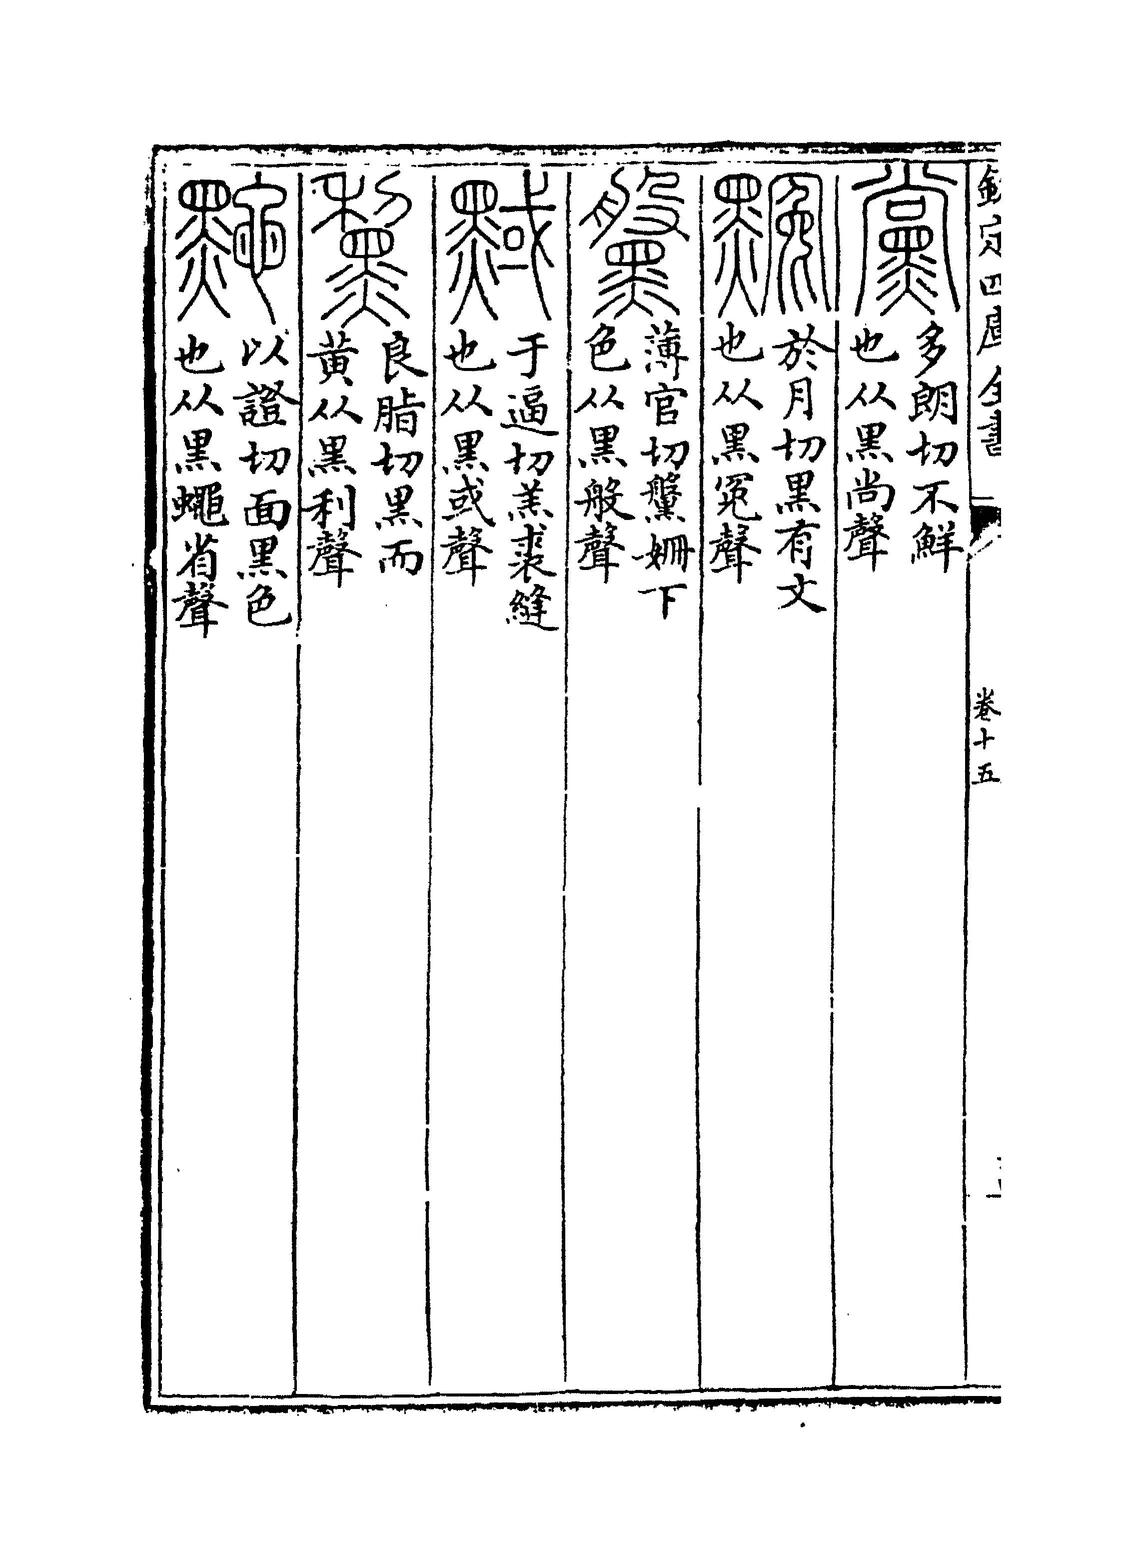 欽定四庫全書
卷十五
黨
多朗切不鮮
也从黑尚聲
䵫
於月切黑有文
也从黑冤聲
𪒋
薄官切𪒋姍下
色从黑般聲
䵧
于逼切羔裘縫
也从黑或聲
良脂切黑而
黄从黑利聲
以證切面黑色
也从黑蠅省聲